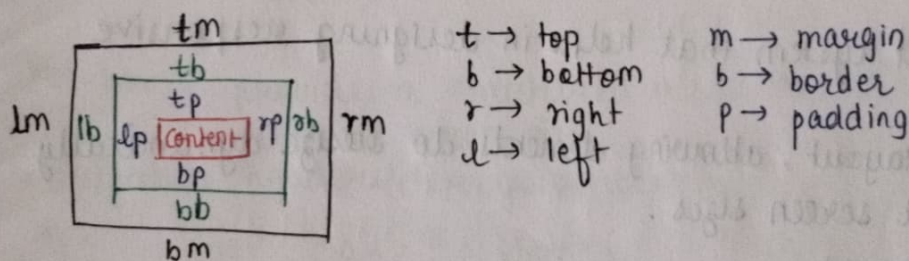 tm
tb
tp
lm lb lp content rp rb rm
bp
bb
bm
t → top
b → bottom
r → right
l → left
m → margin
b → border
p → padding